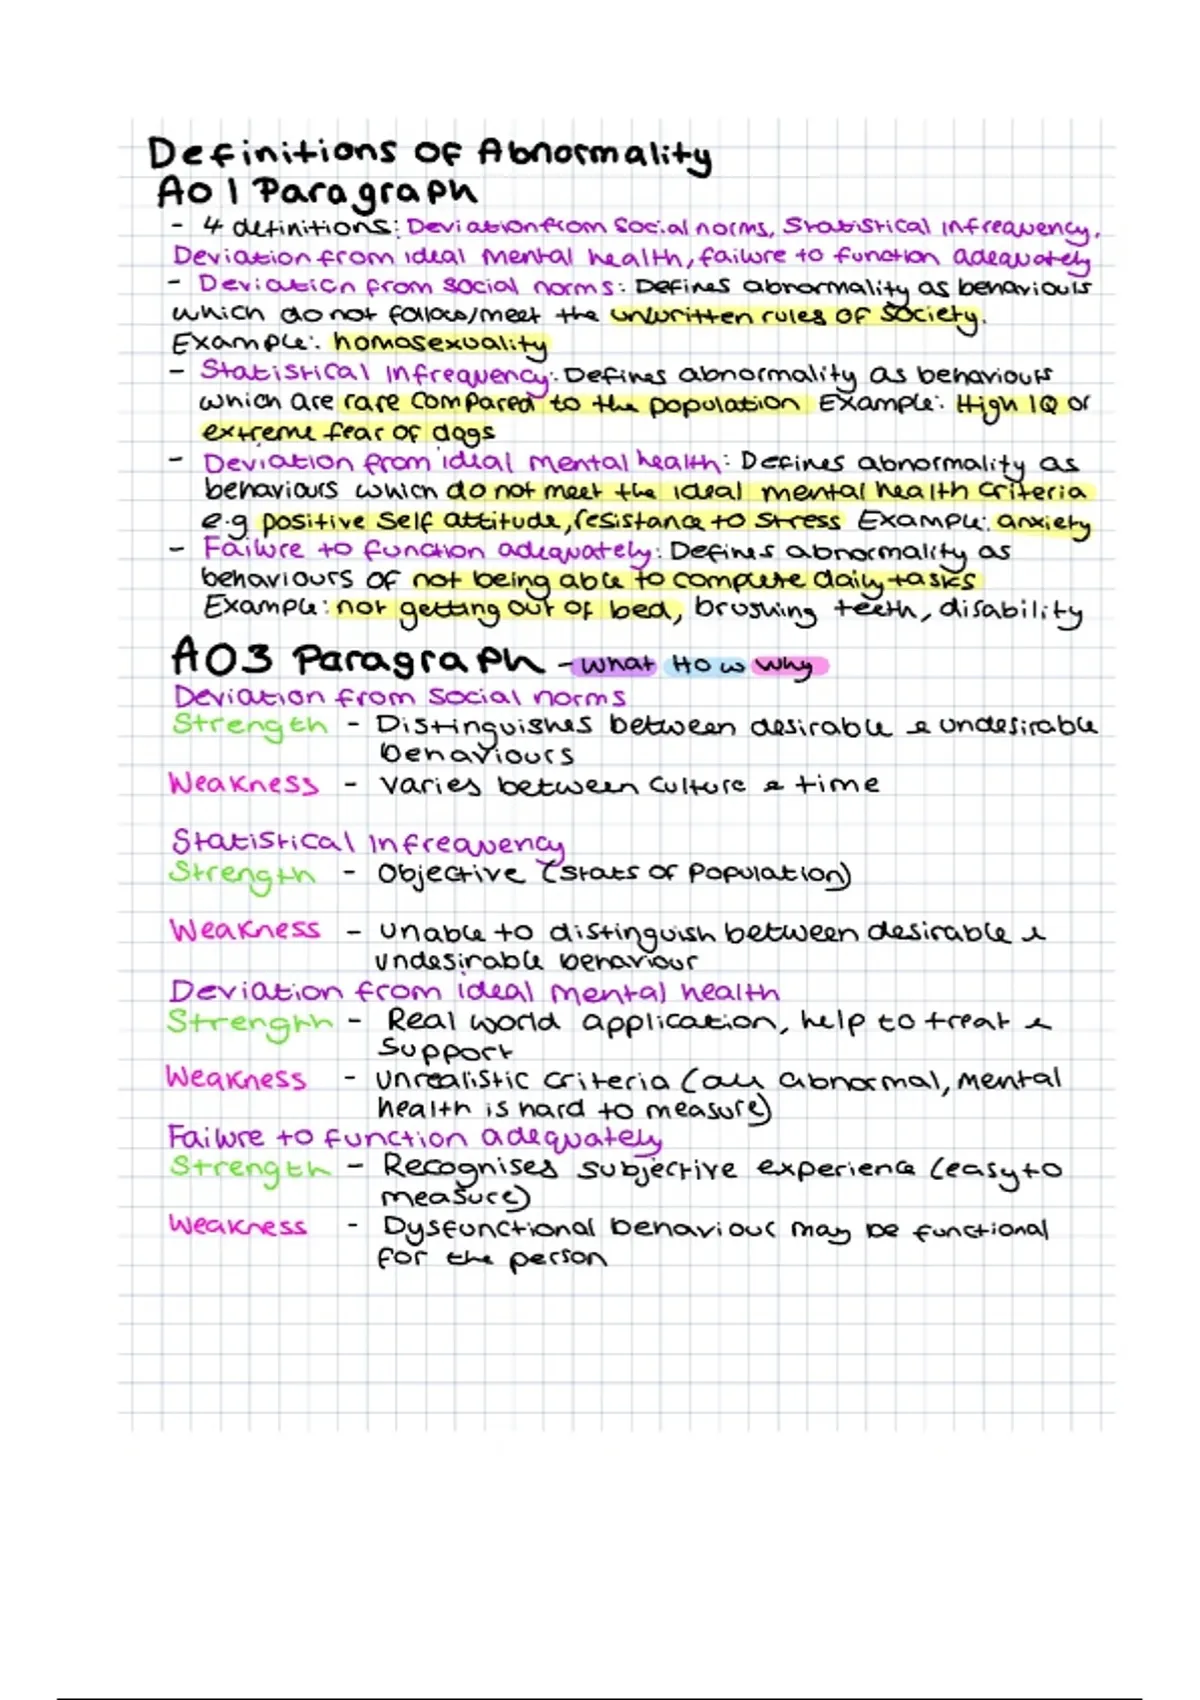 Definitions of Abnormality
AO1 Paragraph
- 4 definitions: Deviation from social norms, Statistical Infrequency,
Deviation from ideal mental health, failure to function adequately
- Deviation from social norms: Defines abnormality as behaviours
which do not follow/meet the unwritten rules of society.
Example: homosexuality
- Statistical Infrequency: Defines abnormality as behaviours
which are rare compared to the population Example: High IQ or
extreme fear of dogs
- Deviation from ideal mental health: Defines abnormality as
behaviours which do not meet the ideal mental health criteria
e.g positive self attitude, resistance to stress Example: anxiety
- Failure to function adequately: Defines abnormality as
behaviours of not being able to complete daily tasks
Example: not getting out of bed, brushing teeth, disability
AO3 Paragraph - What How Why
Deviation from social norms
Strength - Distinguishes between desirable & undesirable
behaviours
Weakness - Varies between culture & time
Statistical Infrequency
Strength - Objective (stats of population)
Weakness - Unable to distinguish between desirable &
undesirable behaviour
Deviation from ideal mental health
Strength - Real world application, help to treat &
support
Weakness - Unrealistic criteria (all abnormal, mental
health is hard to measure)
Failure to function adequately
Strength - Recognises subjective experience (easy to
measure)
Weakness - Dysfunctional behaviour may be functional
for the person